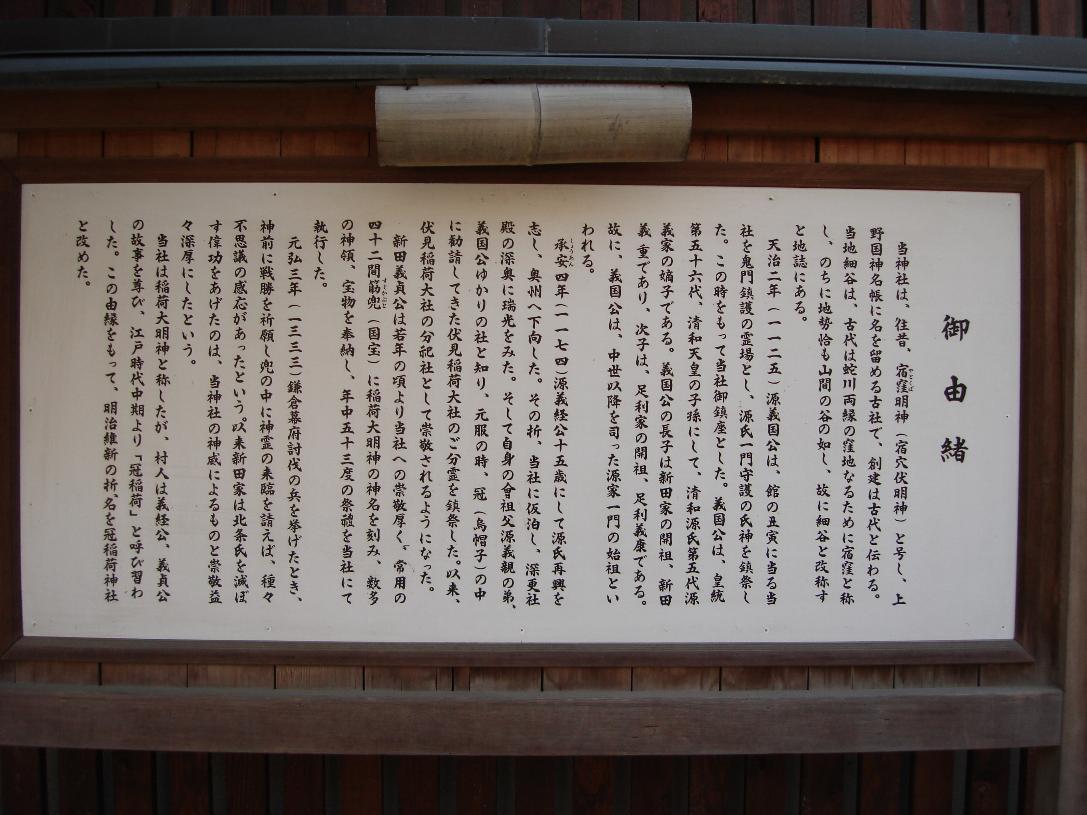 御由緒
当神社は、往昔、宿窪明神(宿穴伏明神)と号し、上
野国神名帳に名を留める古社で、創建は古代と伝わる。
当地細谷は、古代は蛇川両縁の窪地なるために宿窪と称
し、のちに地勢恰も山間の谷の如し、故に細谷と改称す
と地誌にある。
天治二年(一一二五)源義国公は、館の丑寅に当る当
社を鬼門鎮護の霊場とし、源氏一門守護の氏神を鎮祭し
た。この時をもって当社御鎮座とした。義国公は、皇統
第五十六代、清和天皇の子孫にして、清和源氏第五代源
義家の嫡子である。義国公の長子は新田家の開祖、新田
義重であり、次子は、足利家の開祖、足利義康である。
故に、義国公は、中世以降を司った源家一門の始祖とい
われる。
承安四年(一一七四)源義経公十五歳にして源氏再興を
志し、奥州へ下向した。その折、当社に仮泊し、深更社
殿の深奥に瑞光をみた。そして自身の曾祖父源義親の弟、
義国公ゆかりの社と知り、元服の時、冠(烏帽子)の中
に勧請してきた伏見稲荷大社のご分霊を鎮祭した。以来、
伏見稲荷大社の分祀社として崇敬されるようになった。
新田義貞公は若年の頃より当社への崇敬厚く、常用の
四十二間筋兜(国宝)に稲荷大明神の神名を刻み、数多
の神領、宝物を奉納し、年中五十三度の祭禮を当社にて
執行した。
元弘三年(一三三三)鎌倉幕府討伐の兵を挙げたとき、
神前に戦勝を祈願し兜の中に神霊の来臨を請えば、種々
不思議の感応があったという。以来新田家は北条氏を滅ぼ
す偉功をあげたのは、当神社の神威によるものと崇敬益
々深厚にしたという。
当社は稲荷大明神と称したが、村人は義経公、義貞公
の故事を尊び、江戸時代中期より「冠稲荷」と呼び習わ
した。この由縁をもって、明治維新の折、名を冠稲荷神社
と改めた。